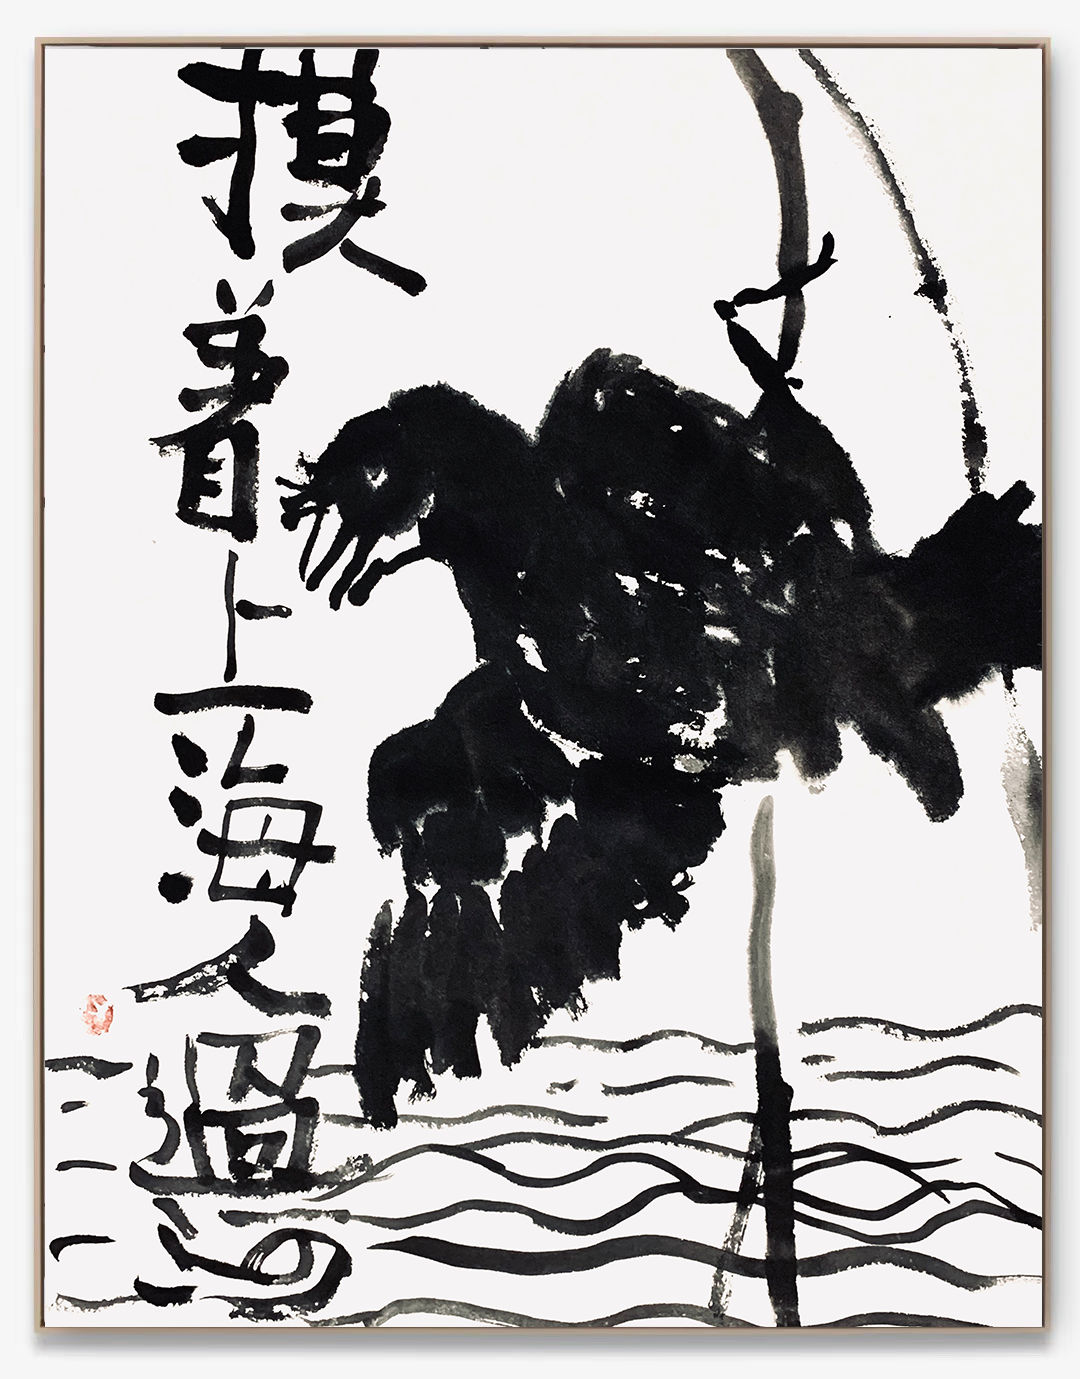 摸着上海人過河